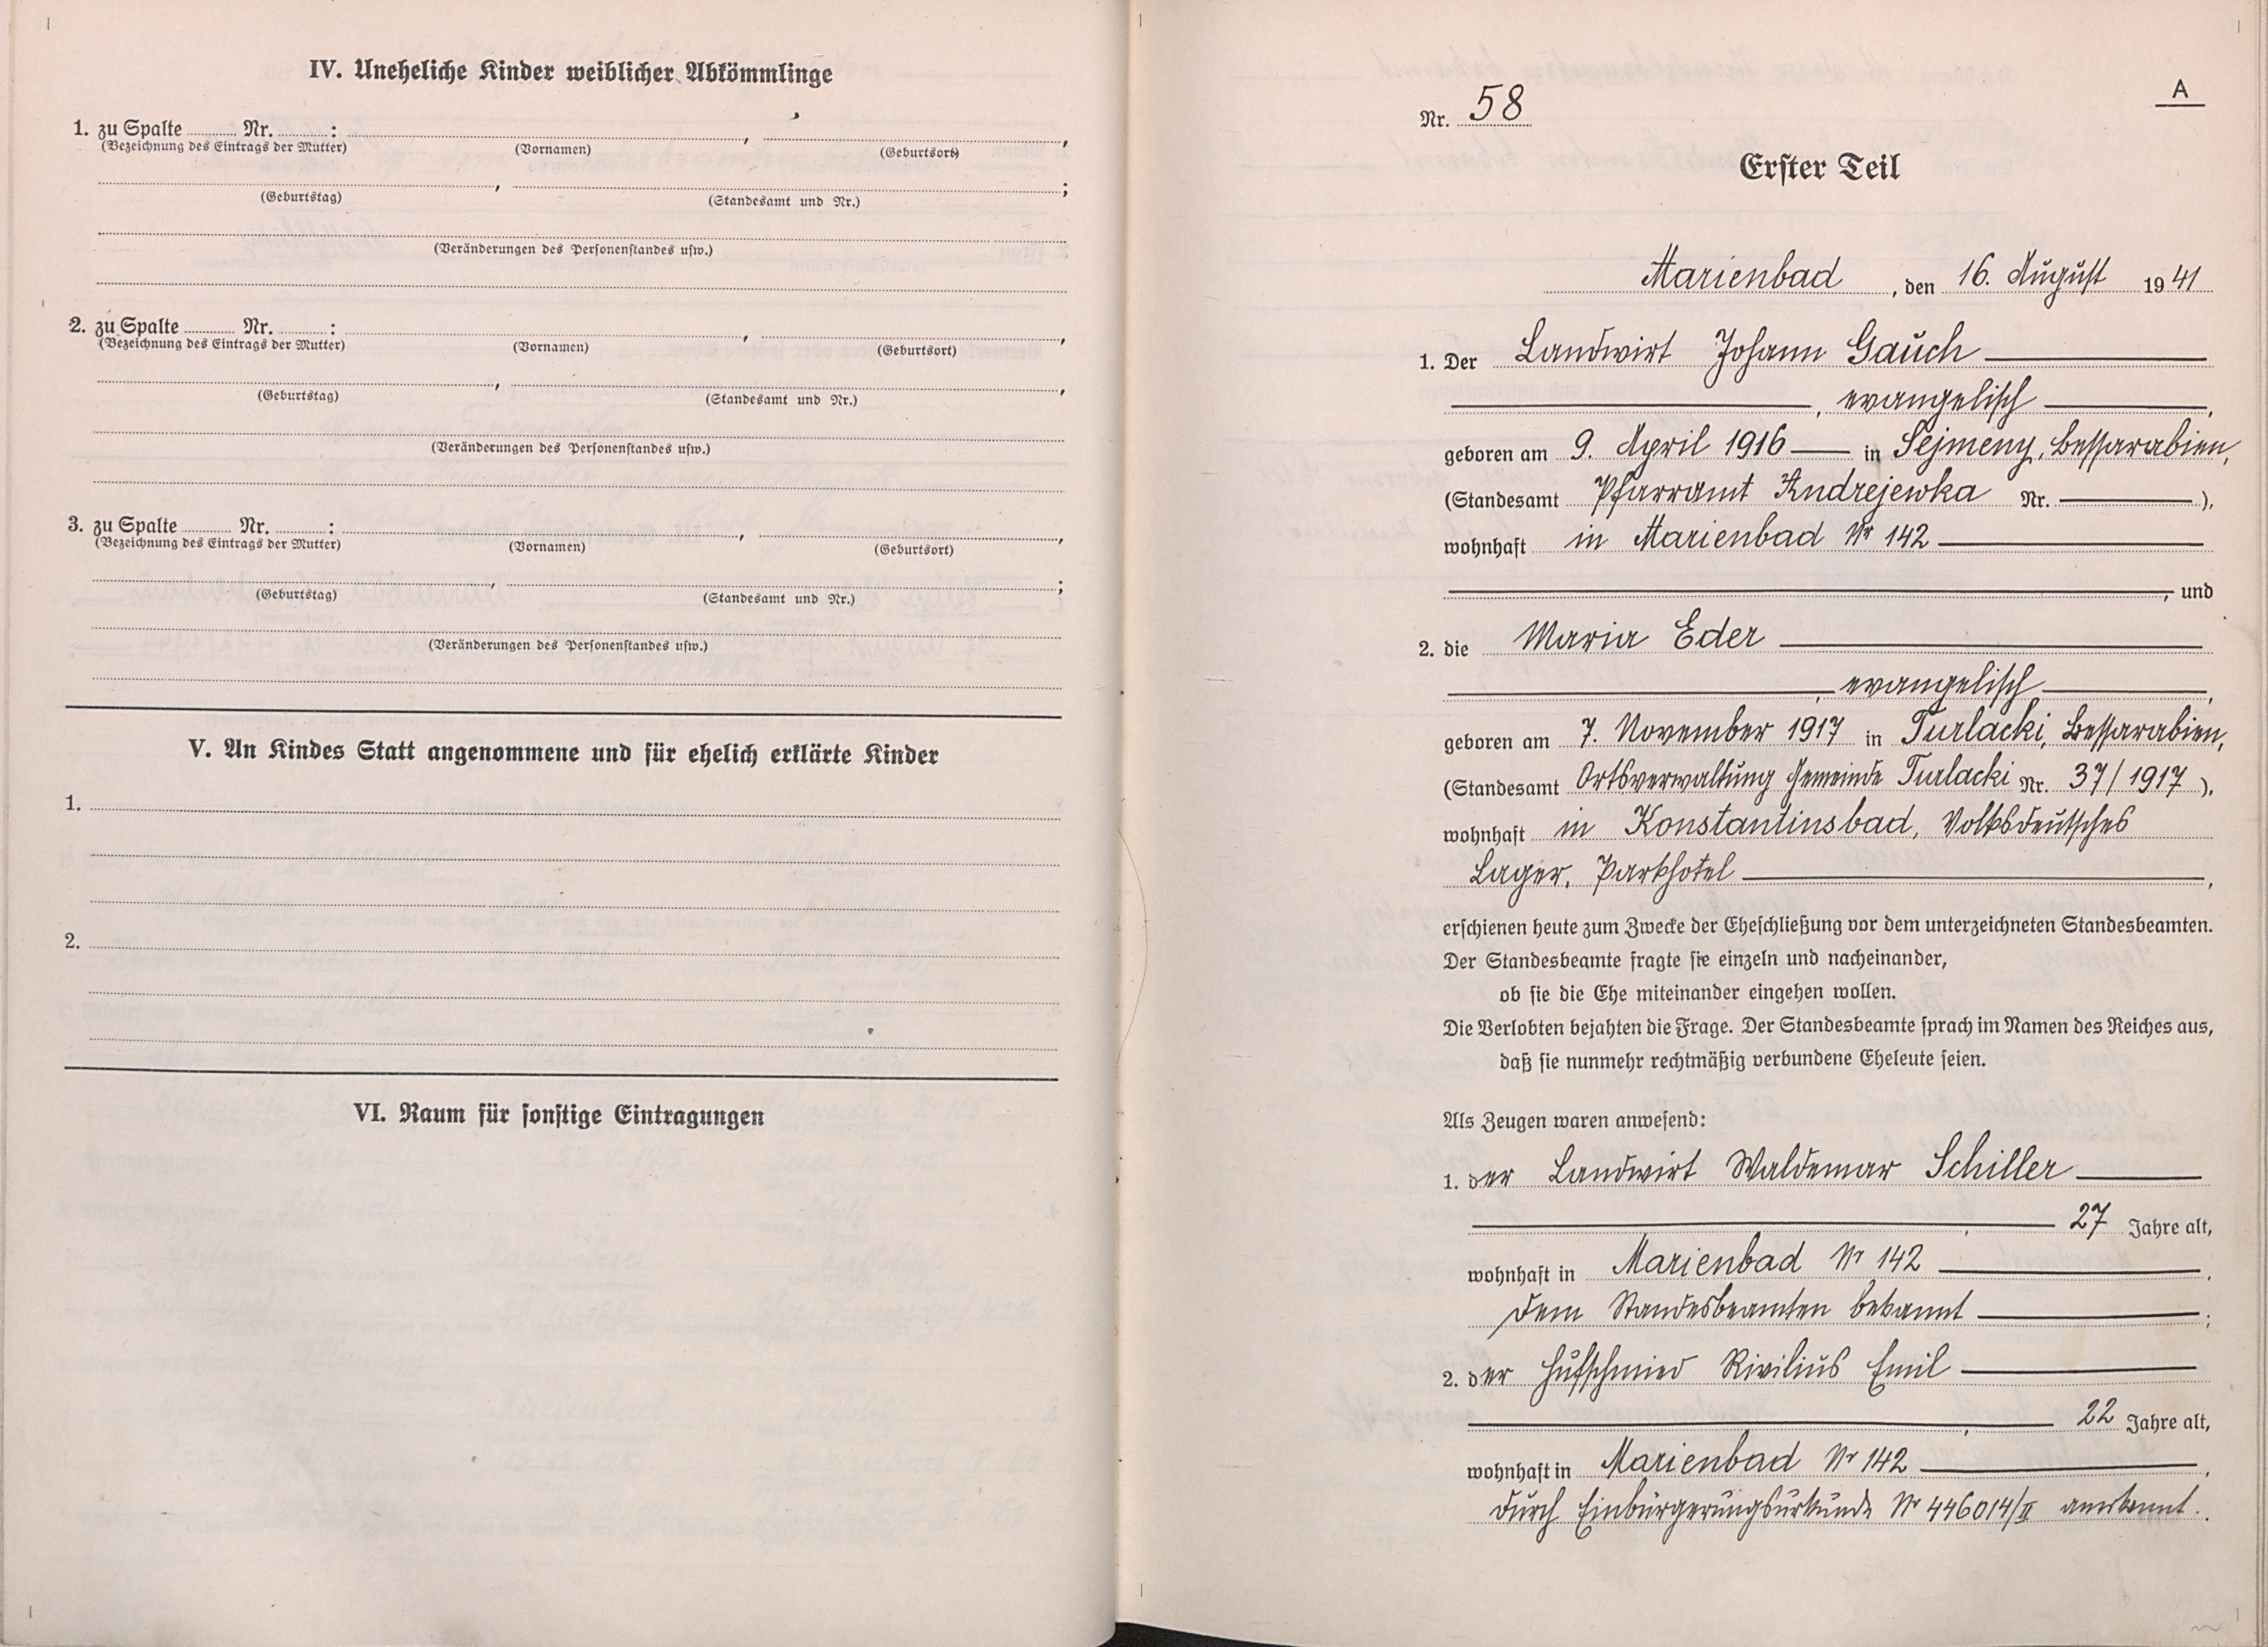 IV. Uneheliche Kinder weiblicher Abkömmlinge
1. zu Spalte ........ Nr. ........ :
(Bezeichnung des Eintrags der Mutter) (Vornamen) , (Geburtsort) ,
(Geburtstag) , (Standesamt und Nr.) ;
(Veränderungen des Personenstandes usw.)
2. zu Spalte ........ Nr. ........ :
(Bezeichnung des Eintrags der Mutter) (Vornamen) , (Geburtsort) ,
(Geburtstag) , (Standesamt und Nr.) ,
(Veränderungen des Personenstandes usw.)
3. zu Spalte ........ Nr. ........ :
(Bezeichnung des Eintrags der Mutter) (Vornamen) , (Geburtsort) ,
(Geburtstag) , (Standesamt und Nr.) ;
(Veränderungen des Personenstandes usw.)
V. An Kindes Statt angenommene und für ehelich erklärte Kinder
1.
2.
VI. Raum für sonstige Eintragungen
A
Nr. 58
Erster Teil
Marienbad , den 16. August 1941
1. Der Landwirt Johann Gauch
, evangelisch ,
geboren am 9. April 1916 in Sejmeny, Bessarabien,
(Standesamt Pfarramt Andrejewka Nr. ),
wohnhaft in Marienbad Nr 142
, und
2. die Maria Eder
, evangelisch ,
geboren am 7. November 1917 in Turlacki, Bessarabien,
(Standesamt Ortsverwaltung Gemeinde Turlacki Nr. 37/1917 ),
wohnhaft in Konstantinsbad, Volksdeutsches
Lager, Parkhotel ,
erschienen heute zum Zwecke der Eheschließung vor dem unterzeichneten Standesbeamten.
Der Standesbeamte fragte sie einzeln und nacheinander,
ob sie die Ehe miteinander eingehen wollen.
Die Verlobten bejahten die Frage. Der Standesbeamte sprach im Namen des Reiches aus,
daß sie nunmehr rechtmäßig verbundene Eheleute seien.
Als Zeugen waren anwesend:
1. der Landwirt Waldemar Schiller
, 27 Jahre alt,
wohnhaft in Marienbad Nr 142 ,
dem Standesbeamten bekannt ;
2. der Hufschmied Rivilius Emil
, 22 Jahre alt,
wohnhaft in Marienbad Nr 142 ,
durch Einbürgerungsurkunde Nr 446014/II anerkannt.